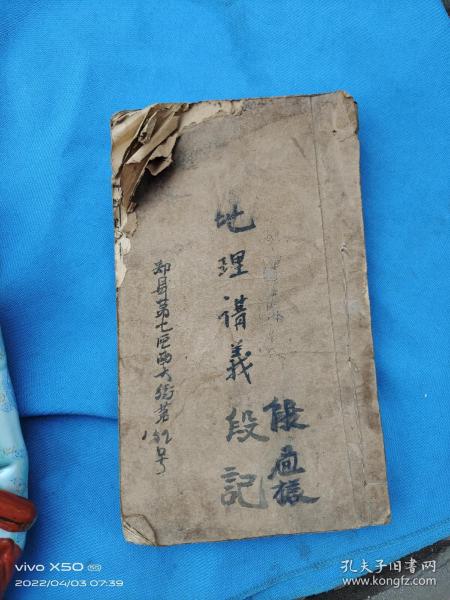 地理講義
段記
段
郑县第七區西大街路
號
vivo X50 5G
2022/04/03 07:39
孔夫子旧书网
www.kongfz.com